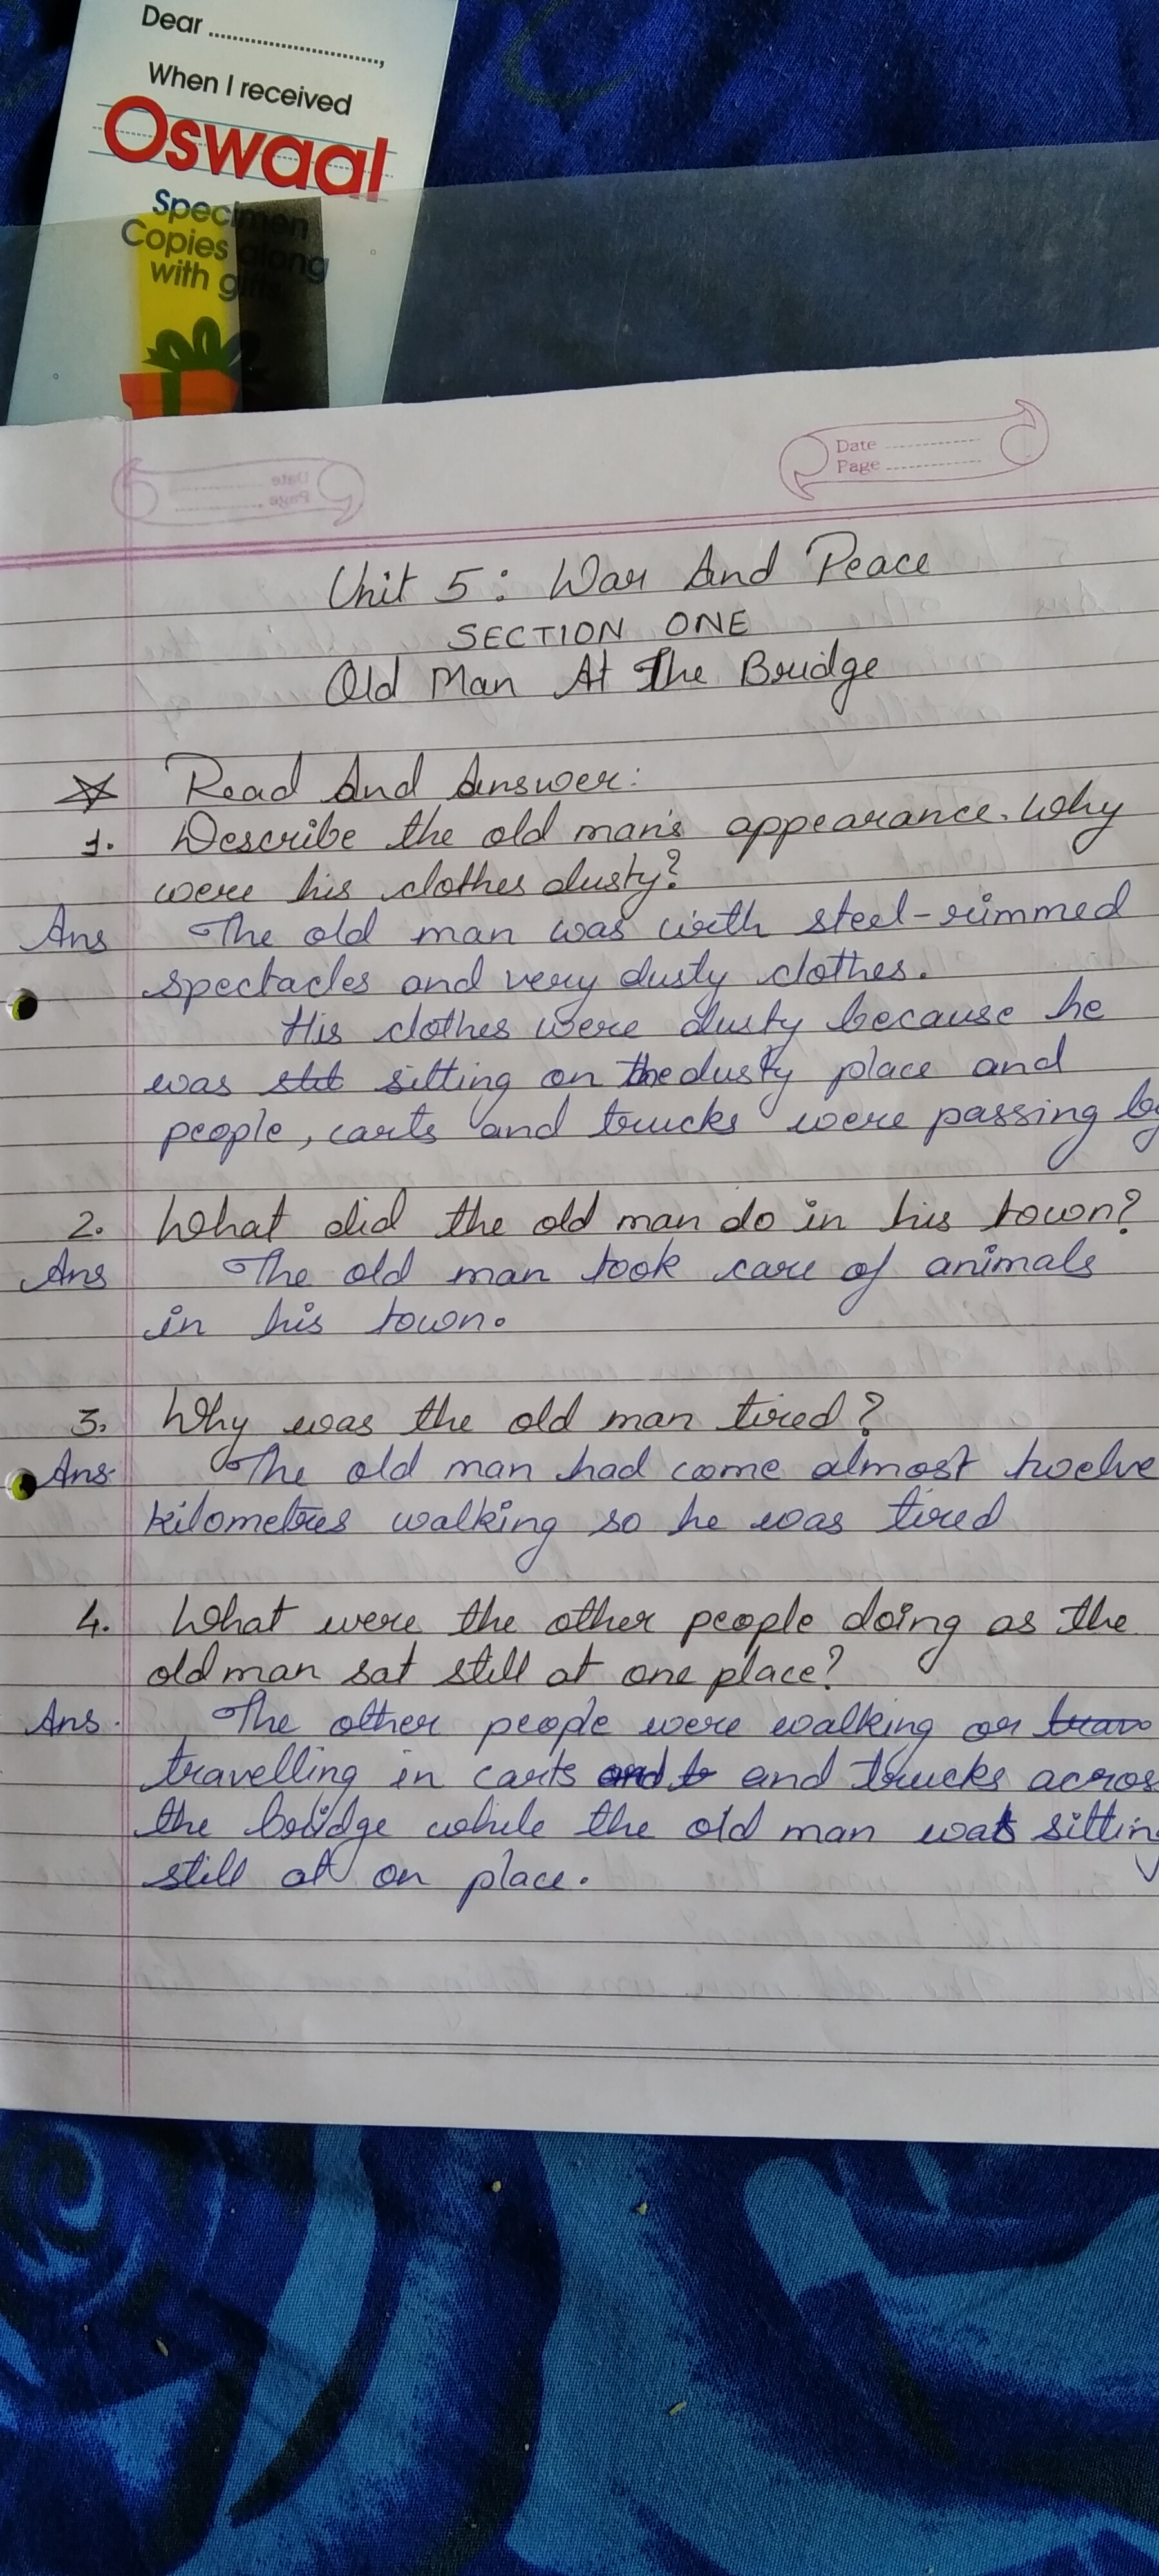 Dear ..............................,
When I received
Oswaal
Specimen
Copies along
with gifts
Date
Page
Date
Page
Unit 5: War And Peace
SECTION ONE
Old Man At The Bridge
Read And Answer:
1. Describe the old man's appearance. Why
were his clothes dusty?
Ans The old man was with steel-rimmed
spectacles and very dusty clothes.
His clothes were dusty because he
was sitting on the dusty place and
people, carts and trucks were passing
2. What did the old man do in his town?
Ans The old man took care of animals
in his town.
3. Why was the old man tired?
Ans. The old man had come almost twelve
kilometres walking so he was tired
4. What were the other people doing as the
old man sat still at one place?
Ans. The other people were walking or
travelling in carts and trucks acros
the bridge while the old man was sittin
still at on place.